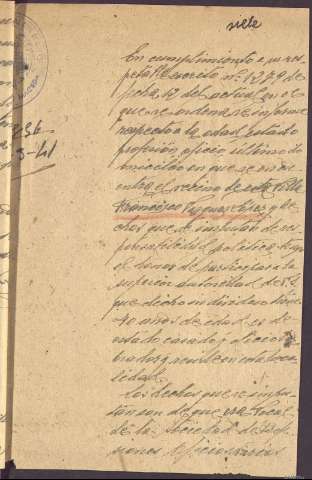 siete
En cumplimiento a su res-
petable escrito nº 1279 de
fecha 12 del actual en el
que se ordena se informe
respecto a la edad, estado
profesión oficio ultimo do-
micilio en que se encu
entra el vecino de esta Villa
Francisco
ches que se imputan de res-
ponsabilidad politica, tengo
el honor de participar a la
superior autoridad de V.S.
que dicho individuo tiene
40 años de edad, es de
estado casado y
y reside en esta loca
lidad.
Los hechos que se impu-
tan son el de que era Vocal
de la Sociedad de
Oficios varios